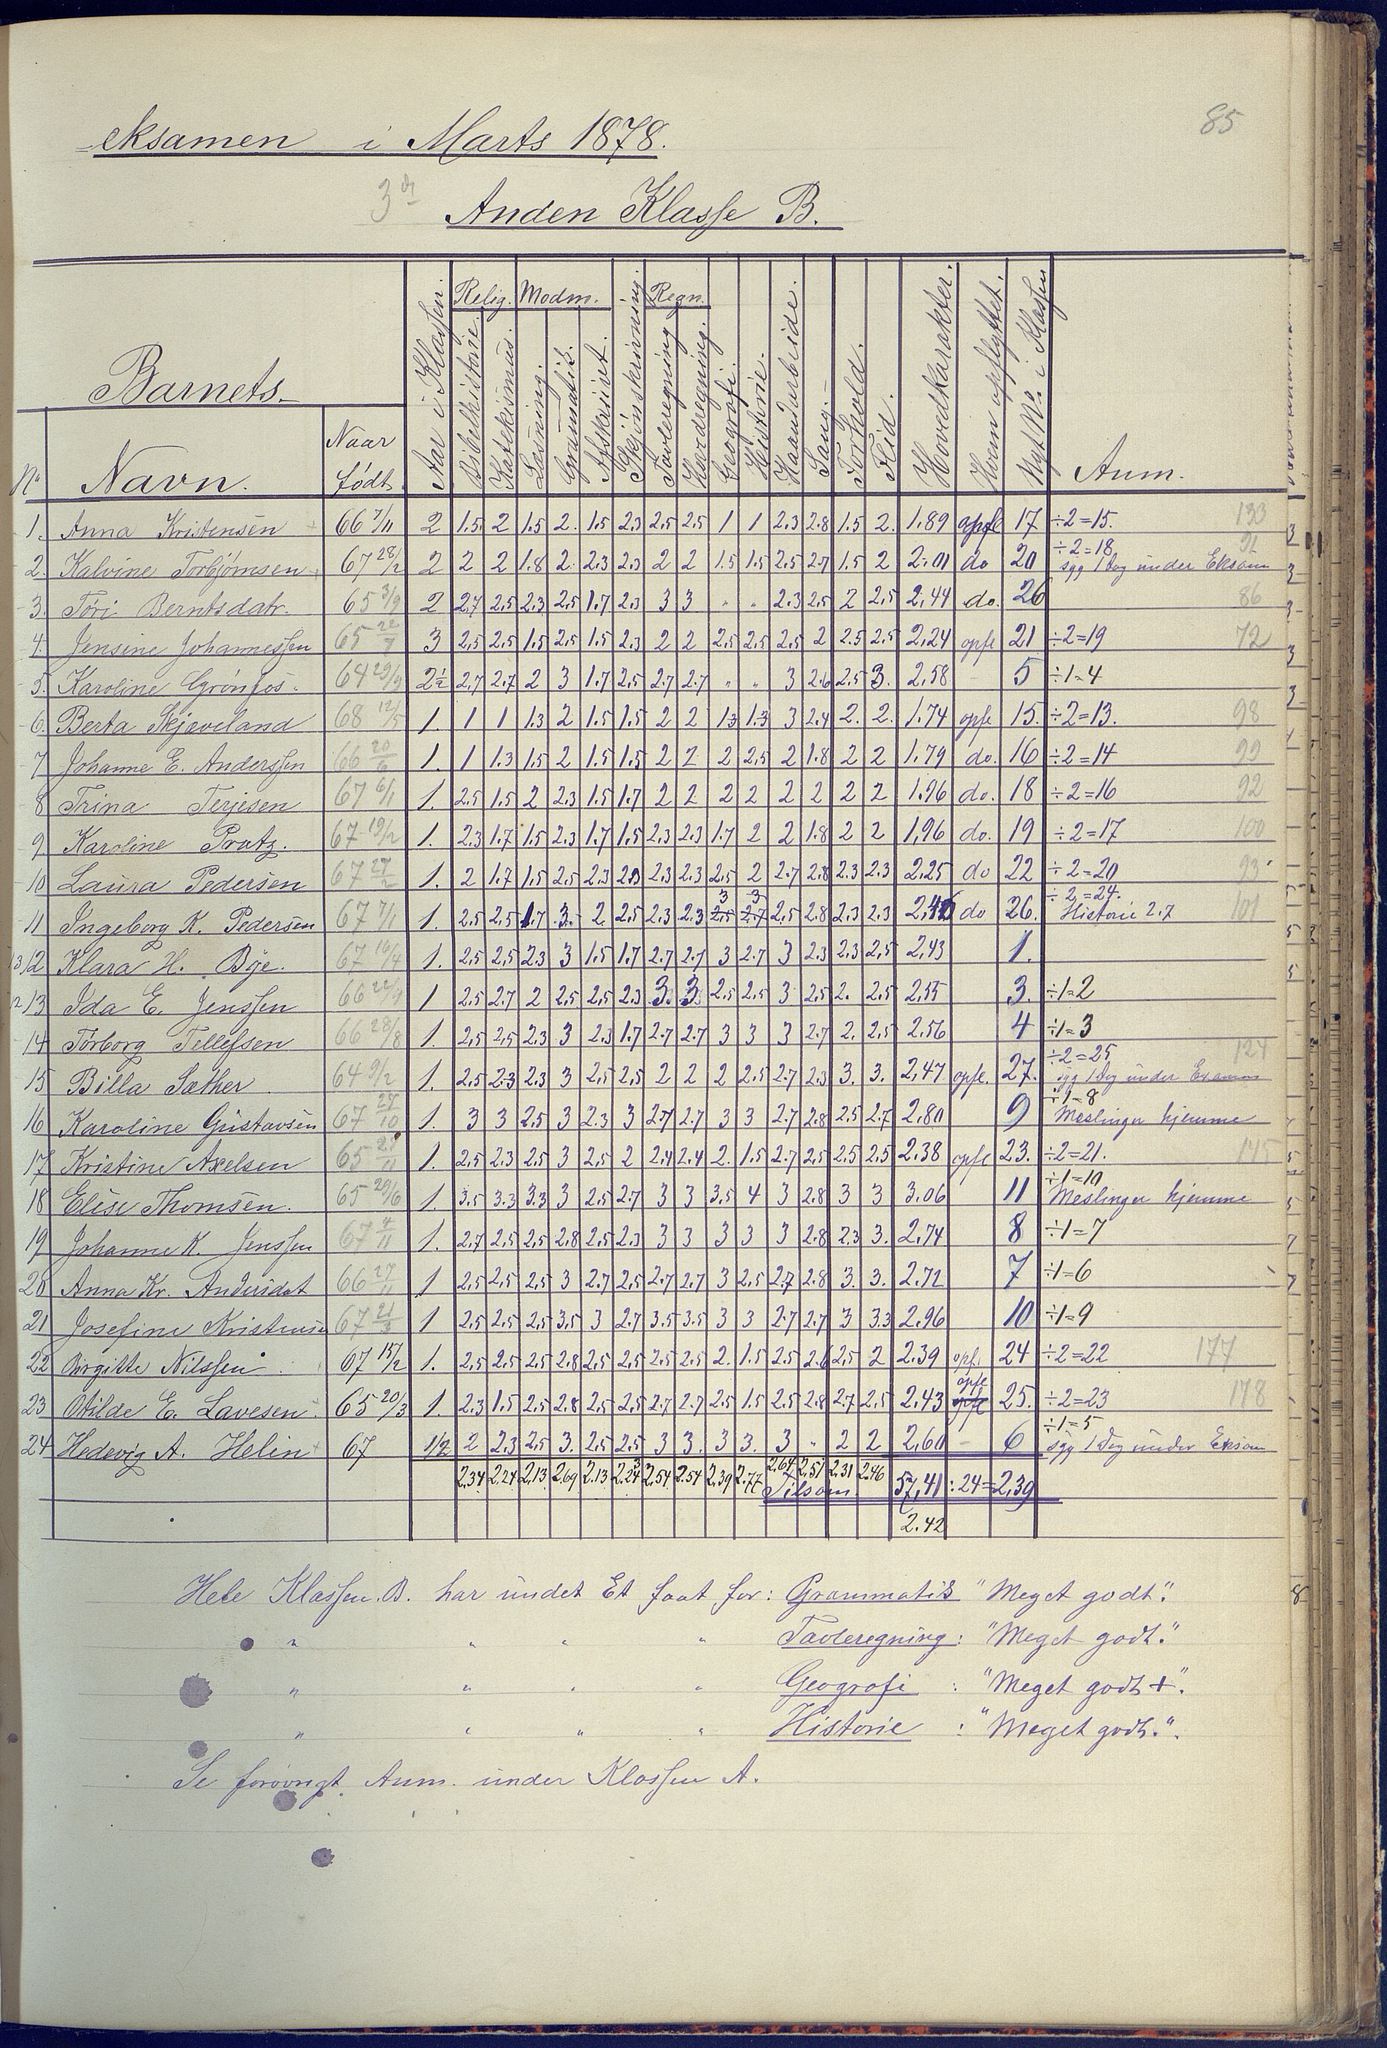 85
eksamen i Marts 1878.
3die Anden Klasse B.
Barnets
No Navn. Naar født Aar i Klassen. Relig. Bibelhistorie. Katekismus. Modm. Læsning. Grammatik. Afskrivt. Skjönskrivning Regn. Tavleregning Hovedregning. Geografi. Historie. Haandarbeide. Sang. Forhold. Flid. Hovedkarakter. Hvem opflyttet. Nyt No i Klassen Anm.
1. Anna Kristensen 66 7/11 2 1.5. 2 1.5 2. 1.5 2.3 2.5 2.5 1 1 2.3 2.8 1.5 2. 1.89 opfl 17 ÷2=15. 133
2. Kalvine Torbjørnsen 67 28/2 2 2 2 1.8 2. 2.3 2.3 2 2 1.5 1.5 2.5 2.7 1.5 2 2.01 do 20 ÷2=18 syg 1 Dag under Eksam 91
3. Tóri Berntsdatr. 65 3/9 2 2.7 2.5 2.3 2.5 1.7 2.3 3 3 " " 2.3 2.5 2 2.5 2.44 do. 26 86
4. Jensine Johannessen 65 22/7 3 2.5 2.5 1.5 2.5 1.5 2.3 2 2 2.5 2.5 2.5 2 2.5 2.5 2.24 opfl 21 ÷2=19 72
5. Karoline Grønfos. 64 29/9 2½ 2.7 2.7 2 3 1.7 2.5 2.7 2.7 " " 3 2.6 2.5 3. 2.58 - 5 ÷1=4
6. Berta Skjeveland 68 12/5 1. 1 1 1.3 2 1.5 1.5 2 2 1.3 1.3 3 2.4 2. 2. 1.74 opfl 15. ÷2=13. 98
7 Johanne E. Anderssen 66 20/6 1. 1 1.3 1.5 2 1.5 1.5 2 2 2 2.5 2 1.8 2 2 1.79 do. 16 ÷2=14 99
8 Trina Terjesen 67 6/4 1. 2.5 1.5 2 2.3 1.5 1.7 2 2 2 2 2 2 2 2 1.96 do. 18 ÷2=16 92
9 Karoline Pratz. 67 19/2 1. 2.3 1.7 1.5 2.3 1.7 1.5 2.3 2.3 1.7 2 2 1.8 2 2 1.96 do. 19 ÷2=17 100
10 Laura Pedersen 67 27/2 1. 2 1.7 1.5 2.5 2.3 2.3 2.3 2.3 2.5 2 2.7 2.8 2.3 2.3 2.25 do 22 ÷2=20 93
11 Ingeborg K. Pedersen 67 7/1 1. 2.5 2.5 1.7 3. 2. 2.5 2.3 2.3 3 3 2.5 2.8 2.3 2.3 2.45 do 26. ÷2=24. Historie 2.7 101
13 12 Klara H. Bye. 67 16/4 1. 2.5 2.5 2.3 3 1.5 1.7 2.7 2.7 3 2.7 3 2.3 2.3 2.5 2.43 1.
12 13 Ida E. Jenssen 66 22/9 1 2.5 2.7 2 2.5 2.5 2.3 3. 3. 2.5 2.5 3 2.5 2. 2.5 2.55 3. ÷1=2
14 Torborg Tellefsen 66 28/8 1. 2.5 2.5 2.3 3 2.3 1.7 2.7 2.7 3 3 3 2.7 2. 2.5 2.56 4 ÷1=3
15 Billa Sæther 64 9/2 1. 2.5 2.3 2.3 3 2.5 2.5 2 2 2 2.5 2.7 2.3 3. 3. 2.47 opfl. 27. ÷2=25 syg 1 Dag under Examen 124
16 Karoline Gustavsen 67 27/10 1. 3 3 2.5 3 2.3 3 2.7 2.7 3 3 2.7 2.8 2.5 2.7 2.80 9 ÷1=8 Meslinger hjemme
17 Kristine Axelsen 65 21/11 1. 2.5 2.3 2.5 3 2.5 2 2.4 2.4 2. 1.5 2.7 2.5 2.5 2.5 2.38 opfl 23. ÷2=21. 145
18 Elise Thomsen. 65 29/6 1. 3.5 3.3 3.3 3 2.5 2.7 3 3 3.5 4 3 2.8 3 3 3.06 11 ÷1=10 Meslinger hjemme
19 Johanne K. Jenssen 67 4/11 1. 2.7 2.5 2.5 2.8 2.5 2.3 3 3 3 3 3 2.8 2.3 3. 2.74 8 ÷1=7
20 Anna Kr. Andersdat 66 27/11 1 2.5 2.5 2.5 3 2.7 2.5 2.7 2.7 3 2.5 2.7 2.8 3. 3. 2.72 7 ÷1=6
21 Josefine Kristensen 67 21/3 1 2.5 2.5 2.5 3.5 3 2.7 3.5 3.5 3 3 2.7 2.7 3 3.3 2.96 10 ÷1=9
22 Birgitte Nilssen 67 15/2 1. 2.5 2.5 2.5 2.8 2.5 2.5 2.5 2.5 2. 1.5 2.5 2.6 2.5 2 2.39 opf. 24 ÷2=22 177
23 Otilde E. Lavesen 65 20/3 1. 2.3 1.5 2.5 2.8 2.5 2.5 2.7 2.7 2.5 1.5 2.5 2.8 2.7 2.5 2.43 opfl 25. ÷2=23 178
24 Hedevig A. Helin 67 1/2 2 2.3 2.5 3. 2.5 2.5 3 3. 3 3. 3 " 2 2 2.60 - 6 ÷1=5 syg 1 Dag under Eksam
2.34 2.24 2.13 2.69 2.13 2.24 2.54 2.54 2.39 2.77 2.64 2.51 2.31 2.46 57,41 :24=2,39
Tilsam.
2.42
Hele Klassen B. har undet Et faat for: Grammatik "Meget godt".
" " " " Tavleregning: "Meget godt."
" " " " Geografi : "Meget godt+".
" " " " Historie : "Meget godt.".
Se forøvrigt Anm. under Klassen A.